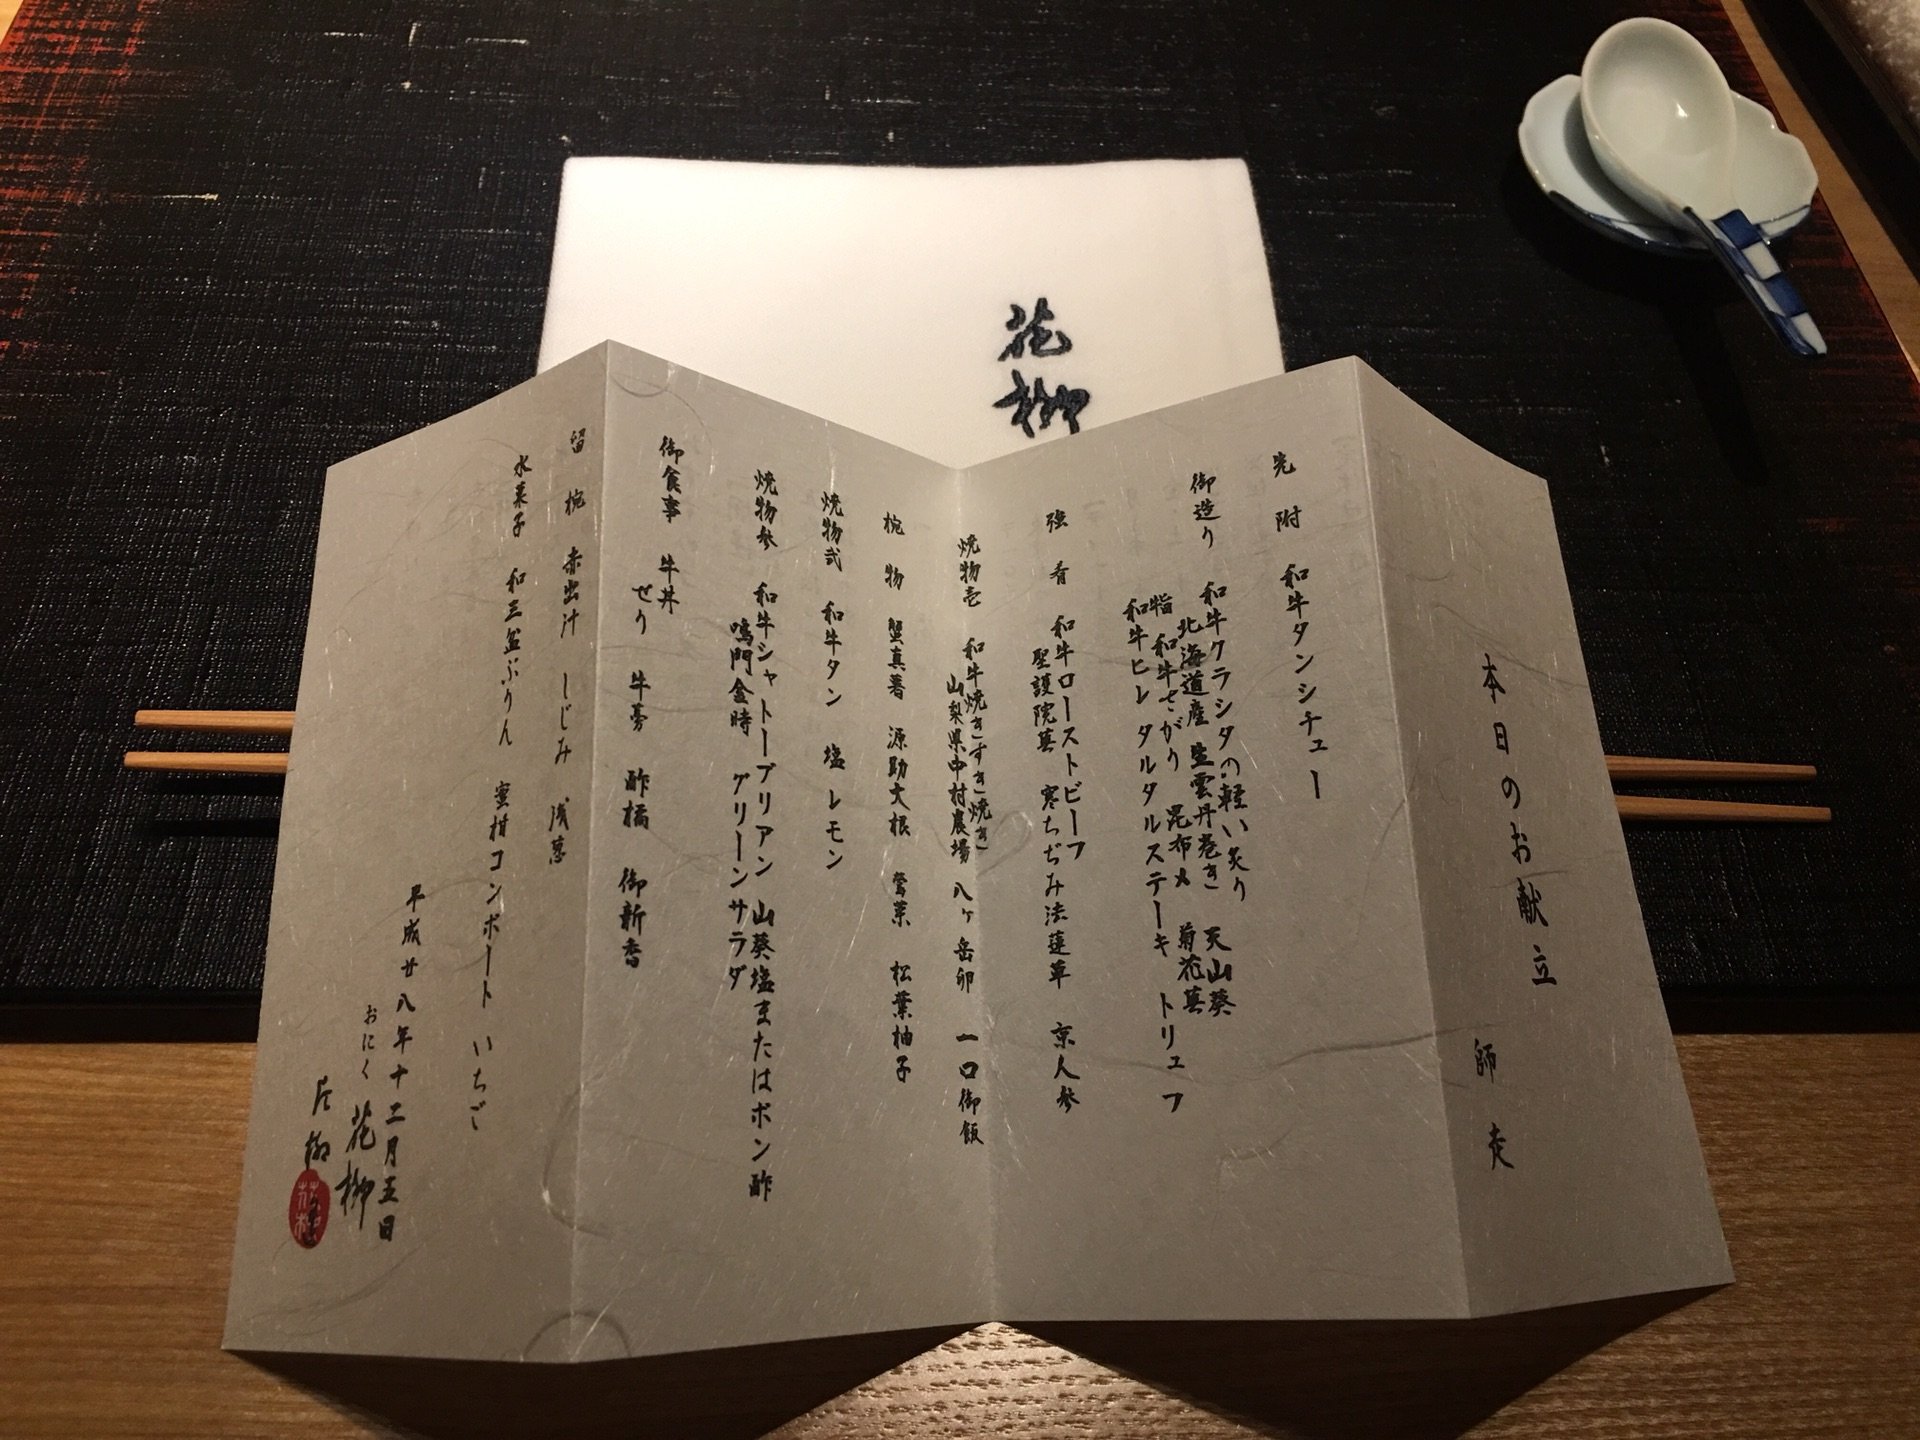 花柳
本日のお献立
師走
先附 和牛タンシチュー
御造り 和牛クラシタの軽い炙り 天山葵
北海道産 生雲丹巻き 菊花蕪
和牛さがり 昆布〆
和牛ヒレ タルタルステーキ トリュフ
強肴 和牛ローストビーフ
聖護院蕪 寒ちぢみ法蓮草 京人参
焼物壱 和牛焼きすき焼き
山梨県中村農場 八ヶ岳卵 一口御飯
椀物 蟹真薯 源助大根 鶯菜 松葉柚子
焼物弐 和牛タン 塩 レモン
焼物参 和牛シャトーブリアン 山葵塩またはポン酢
鳴門金時 グリーンサラダ
御食事 牛丼
せり 牛蒡 酢橘 御新香
留椀 赤出汁 しじみ 浅葱
水菓子 和三盆ぷりん 蜜柑コンポート いちご
平成廿八年十二月五日
おにく 花柳
片柳